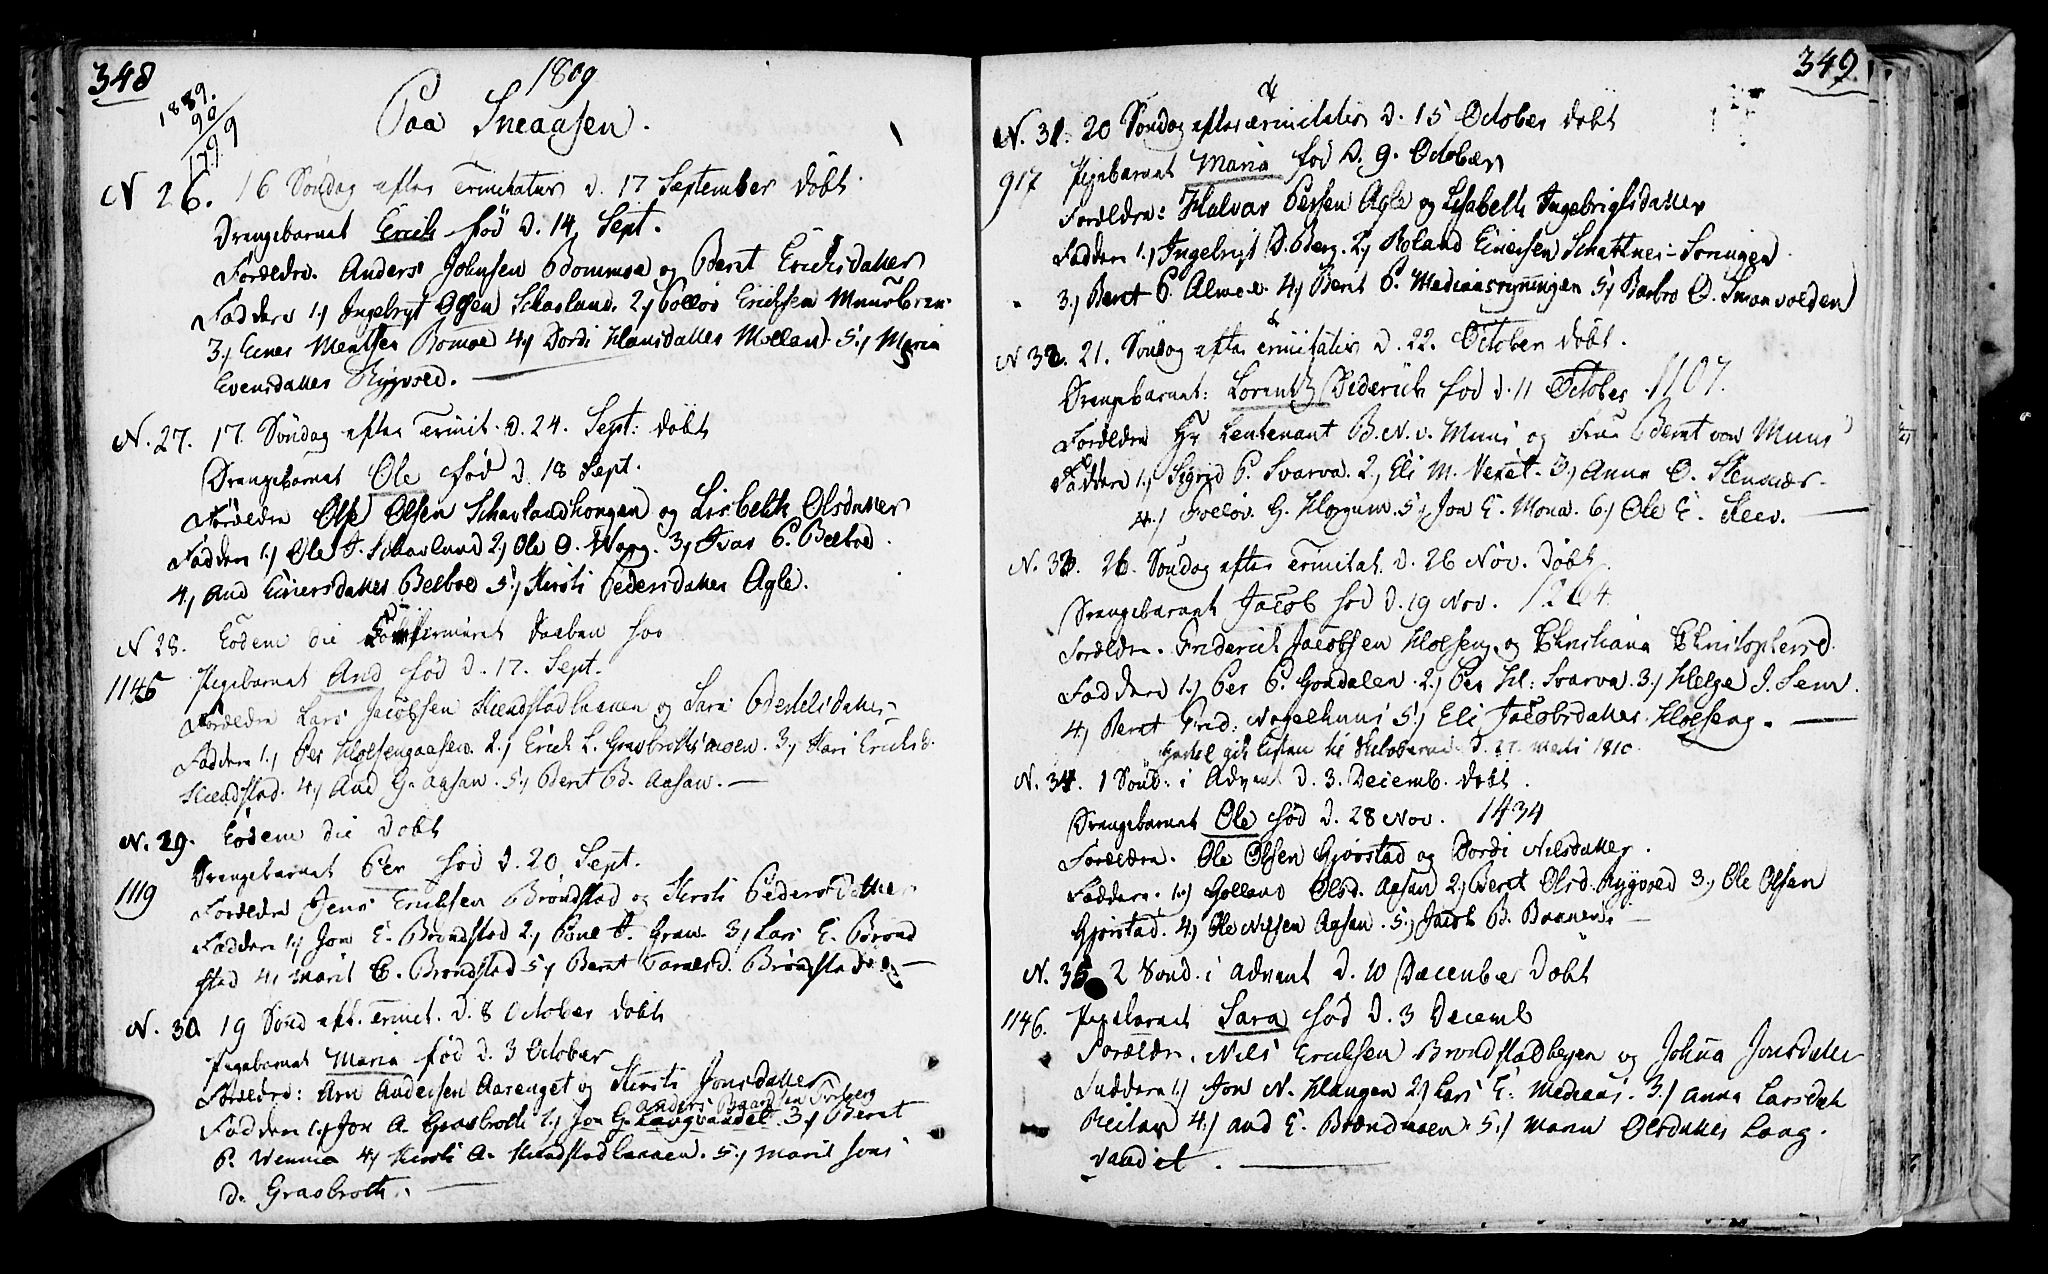 348
1809
1889.
90
1799
Paa Sneaasen.
N 26. 16 Søndag efter Trinitatis d. 17 September døbt.
Drengebarnet Erich fød d. 14 Sept.
Forældre. Anders Johnsen Bommoe og Beret Erichsdatter
Faddere 1.) Ingebrygt Olsen Schavland. 2.) Follov Erichsen
3.) Einer Mentsen Bomoe 4.) Dordi Hansdatter Molland. 5.) Maria
Evensdatter Rygvold.
N. 27. 17. Søndag efter Trinit. d. 24. Sept: døbt
Drengebarnet Ole fød d. 18 Sept.
Forældre Ole Olsen Schavlandhougen og Lisbeth Olsdatter
Faddere 1.) Ole J. Schavland 2.) Ole O. Woxg. 3.) Ivar P. Belboe.
4.) And Einersdatter Belboe 5.) Kirsti Pedersdatter Agle.
N 28. Eodem die
1145 Pigebarnet And fød d. 17. Sept.
Forældre Lars Jacobsen Kiendstadbannen og Sara Bertelsdatter
Faddere 1.) Per Kloesengaasen. 2.) Erich L. Grasbrotsmoen. 3.) Kari Erichsd.
Kiendstad. 4.) And G. Aasan. 5.) Beret B. Aasan.
N. 29. Eodem die døbt
Drengebarnet Per fød d. 20 Sept.
1119 Forældre Jens Erichsen Brøndstad og Kirsti Pedersdatter
Faddere 1.) Jon E. Brøndstad 2.) Arne J. Gran. 3.) Lars E. Brønd
stad 4.) Marit C. Brøndstad 5.) Beret Tomesd. Brøndstad
N. 30. 19 Sønd eft. Trinit. d. 8 October døbt
Pigebarnet Maria fød d. 3 October
Forældre: Arn Andersen Aarenget og Kirsti Jonsdatter
Anders Baardsen Forberg
Faddere 1.) Jon A. Grasbrotte 2.) Jon G. Langvandet 3.) Beret
P. Wennie 4.) Kirsti A. Kiendstadbannen. 5.) Marit Jons
d. Grasbrotte.
349
N. 31. 20 Søndag efter Trinitatis d. 15 October døbt
917 Pigebarnet Maria fød d. 9. October
Forældre: Halvor Persen Agle og Lisabeth Ingebrigtsdatter
Faddere 1.) Ingebrigt O. Berg. 2.) Roland Einersen
3.) Beret P. Almoe. 4.) Beret P. Mediaasrynningen 5.) Barbro O. Snaavolden
N. 32. 21. Søndag efter Trinitatis d. 22. October døbt.
Drengebarnet: Lorentz Diderich fød d. 11 October. 1107.
Forældre Hr Leutenant B. N. v. Muns og Frue Beret von Muns
Faddere 1.) Sigrid P. Svarva. 2.) Eli M. Vexet. 3.) Anna O. Stensvær
4.) Follov. G. Horgum. 5.) Jon E. Mona. 6.) Ole E. Klev.
N. 33. 26. Søndag efter Trinitat. d. 26 Nov. døbt.
Drengebarnet Jacob fød d. 19 Nov. 1264
Forældre. Friderich Jacobsen Kloeseng og Christiana Christophersd.
Faddere 1.) Per P. Gondalen. 2.) Per H: Svarva. 3.) Helge J. Sem.
4.) Beret Frid: Nagelhuus 5.) Eli Jacobsdatter Kloeseng.
d. 27. Marti 1810.
N. 34. 1 Sønd: i Advent d. 3. Decemb. døbt.
Drengebarnet Ole fød d. 28 Nov. 1434
Forældre. Ole Olsen Gjørstad og Dordi Nilsdatter.
Faddere. 1.) Golleno Olsd. Aasan 2.) Beret Olsd. Rygvold 3.) Ole Olsen
Gjørstad. 4.) Ole Nilsen Aasan. 5.) Jacob B. Bannen.
N. 35 2 Sønd. i Advent d. 10 December døbt
1146. Pigebarnet Sara fød d. 3 Decemb
Forældre. Nils Erichsen Brøndstadbejen og Johna Jonsdatter
Faddere 1.) Jon N. Haugen 2.) Lars E. Mediaas. 3.) Anna Larsdat.
Reitan 4.) And E. Brændmoen 5.) Maria Olsdatter Laag
vandet.